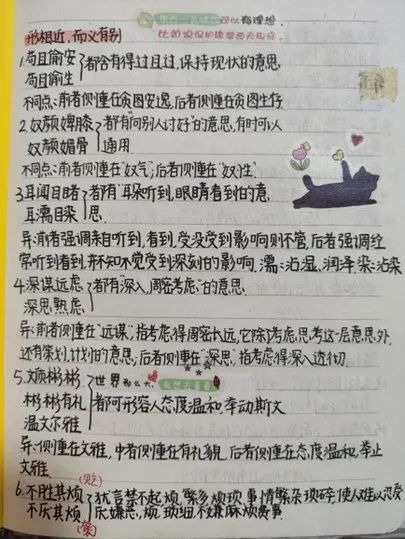 可以有理想，
形相近，而义有别
1.苟且偷安
苟且偷生
都含有得过且过，保持现状的意思
不同点：前者侧重在贪图安逸，后者侧重在贪图生存
2.奴颜婢膝
奴颜媚骨
都有“向别人讨好”的意思，有时可以
通用
不同点：前者侧重在“奴气”；后者侧重在“奴性”
3.耳闻目睹
耳濡目染
都有“耳朵听到，眼睛看到的意
思
异：前者强调亲自听到，看到，受没受到影响则不管，后者强调经
常听到看到，并不知不觉受到深刻的影响，濡：沾湿、润泽 染：沾染
4.深谋远虑
深思熟虑
都有“深入，周密考虑”的意思
异：前者侧重在“远谋”，指考虑得周密长远，它除了考虑思考这一层意思外，
还有策划，计划的意思，后者侧重在“深思”，指考虑得深入透彻
世界那么大，我想去看看
5.文质彬彬
彬彬有礼
温文尔雅
都可形容人态度温和，举动斯文
异：侧重在文雅，中者侧重在有礼貌，后者侧重在态度温和，举止
文雅
(贬)
6.不胜其烦
不厌其烦
(褒)
犹言禁不起烦，繁多烦琐，事情繁杂琐碎，使人难以忍受
厌：嫌恶，烦：琐细，不嫌麻烦费事